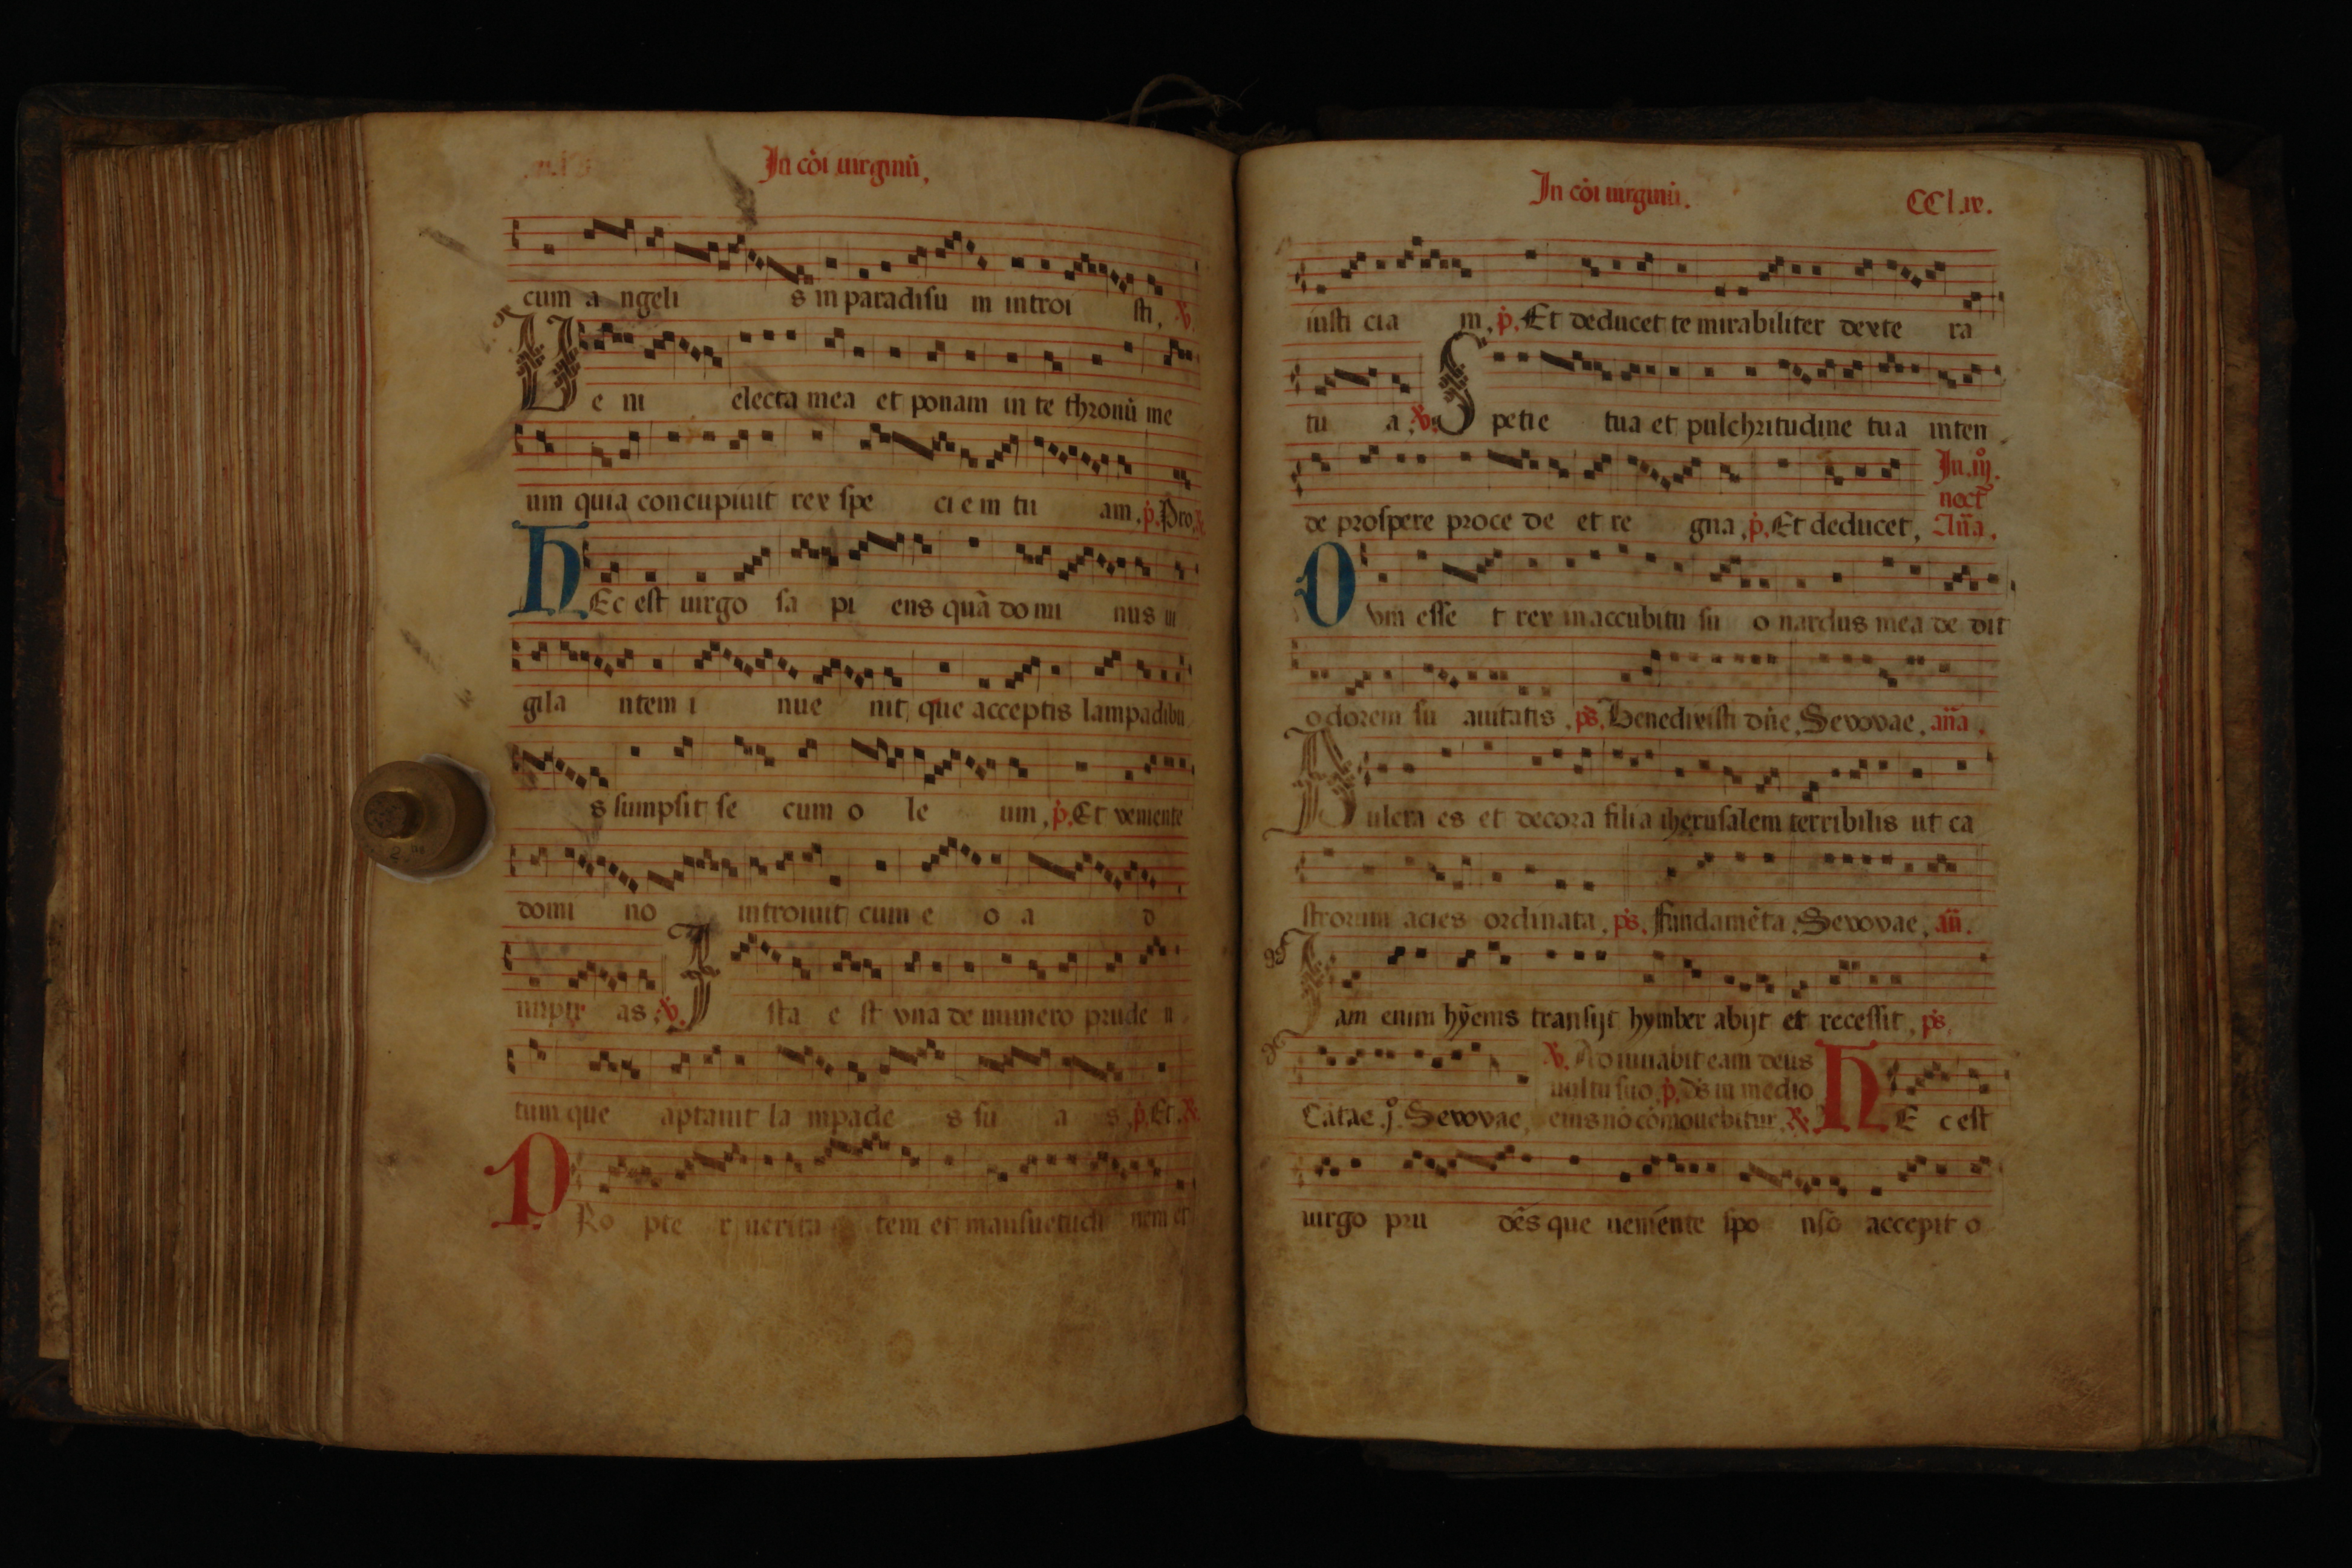 In cōi uirginū.
cum a ngeli s in paradisu m introi sti, ℣.
Ve ni electa mea et ponam in te thronū me
um quia concupiuit rex spe ci e m tu am. p̄. Pro. ℟
HEc est uirgo sa pi ens quā do mi nus ui
gila ntem i nue nit, que acceptis lampadibu
s sumpsit se cum o le um, p̄. Et veniente
domi no introiuit cum e o a d
nupti as. ℣. Ista e st vna de numero prude n
tum que aptauit la mpade s su a s, p̄. Et. ℟
PRo pte r uerita tem et mansuetudi nem et
In cōi uirginū. CCl.ix.
iusti cia m. p̄. Et deducet te mirabiliter dexte ra
tu a. ℣. Spetie tua et pulchritudine tua inten
de prospere proce de et re gna, p̄. Et deducet, In .iij. noct̄ Añа.
Dvm esse t rex in accubitu su o nardus mea de dit
odorem su auitatis, ps̄. Benedixisti dñe, Sevovae, aña.
Pulcra es et decora filia iherusalem terribilis ut ca
strorum acies ordinata, ps̄. Fundamēta. Sevovae, añ.
Iam enim hyems transijt hymber abijt et recessit, ps̄.
Cātate .j. Sevovae, ℣. Adiuuabit eam deus
uultu suo, p̄. ds̄ in medio
eius nō cōmouebitur. ℟ HE c est
uirgo pru dēs que ueniēnte spo nsō accepit o